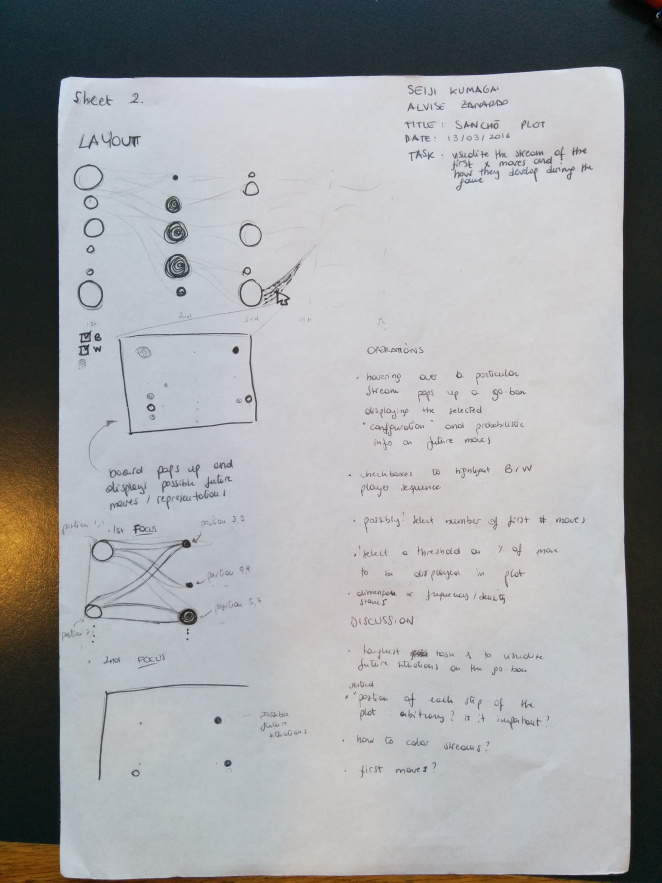 Sheet 2.
SEIJI KUMAGAI
ALVISE ZANARDO
TITLE: SANCHŌ PLOT
DATE: 13/03/2016
TASK: visualize the stream of the
first x moves and
how they develop during the
game
LAYOUT
1st 2nd 3rd
B
W
board pops up and
displays possible future
moves / representations
position 1,1
1st FOCUS
position 3,3
position 9,9
position 5,7
position
2nd FOCUS
possible
future
situations
OPERATIONS
· hovering over a particular
stream pops up a go-ban
displaying the selected
"configuration" and probabilistic
info on future moves
· checkboxes to highlight B/W
player sequence
· possibly select number of first # moves
· select a threshold on % of move
to be displayed in plot
· dimension stones ∝ frequency/density
DISCUSSION
· highest task is to visualize
future situations on the go-ban
· vertical position of each step of the
plot arbitrary? is it important?
· how to color streams?
· first moves?